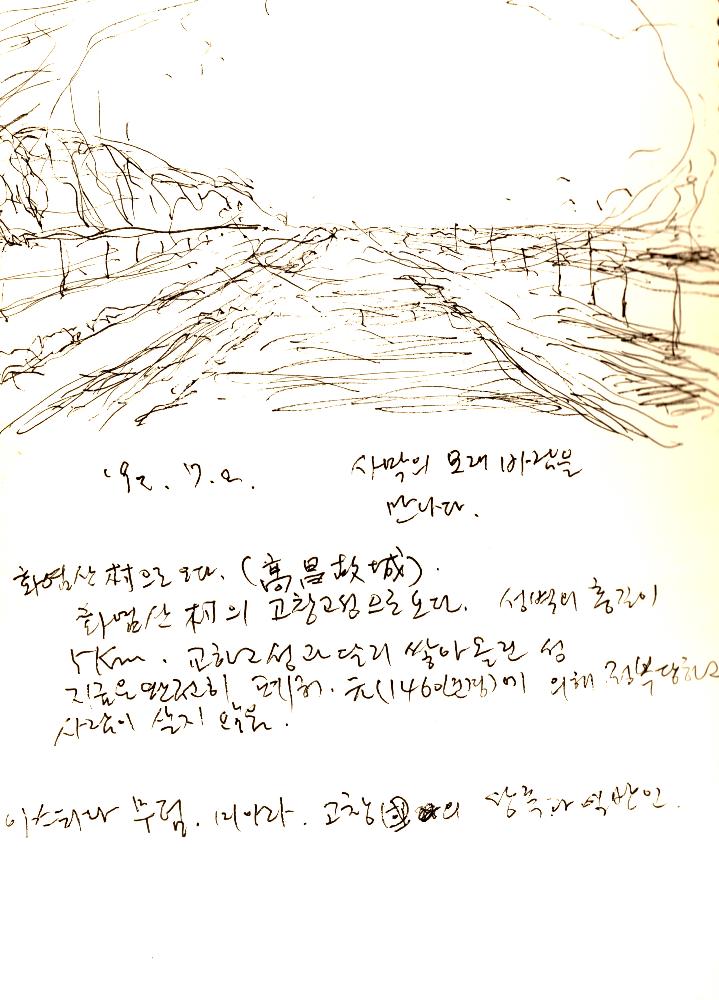 '92. 7. 2.
사막의 모래 바람을
만나다.
화염산 村으로 오다. (高昌故城).
화염산 村의 고창고성으로 오다. 성벽의 총길이
5Km. 교하고성과 달리 쌓아 올린 성
지금은 완전히 폐허. 元(1460년경)에 의해 정복당하고
사람이 살지 않음.
아스타나 무덤. 미이라. 고창國의 왕족과 일반인.